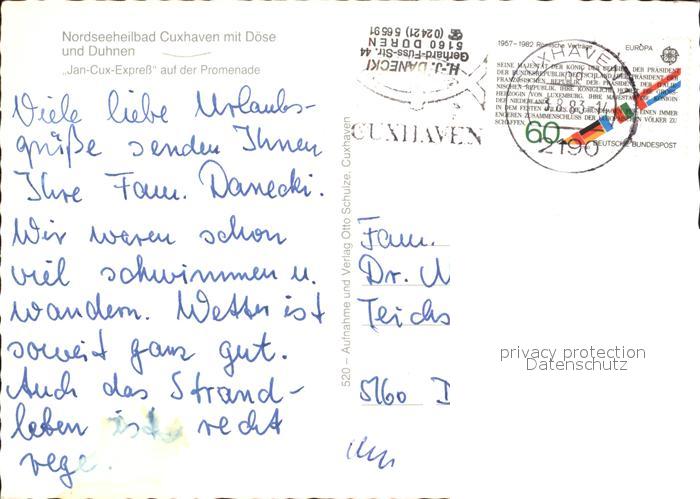 Nordseeheilbad Cuxhaven mit Döse
und Duhnen
„Jan-Cux-Expreß" auf der Promenade
Viele liebe Urlaubs-
grüße senden Ihnen
Ihre Fam. Danecki.
Wir waren schon
viel schwimmen u.
wandern. Wetter ist
soweit ganz gut.
Auch das Strand-
leben ist recht
rege.
520 – Aufnahme und Verlag Otto Schulze, Cuxhaven
H.-J. DANECKI
Gerhard-Fuss-Str. 44
5160 DÜREN
☎ (02421) 56591
CUXHAVEN
CUXHAVEN
8.83.-1
2190
1957–1982 Römische Verträge EUROPA
SEINE MAJESTÄT DER KÖNIG DER BELGIER, DER PRÄSIDENT
DER BUNDESREPUBLIK DEUTSCHLAND, DER PRÄSIDENT DER
FRANZÖSISCHEN REPUBLIK, DER PRÄSIDENT DER ITALIE-
NISCHEN REPUBLIK, IHRE KÖNIGLICHE HOHEIT DIE GROSS-
HERZOGIN VON LUXEMBURG, IHRE MAJESTÄT DIE KÖNIGIN
DER NIEDERLANDE
IN DEM FESTEN WILLEN, DIE GRUNDLAGEN FÜR EINEN IMMER
ENGEREN ZUSAMMENSCHLUSS DER EUROPÄISCHEN VÖLKER ZU
SCHAFFEN
60
DEUTSCHE BUNDESPOST
Fam.
Dr.
Teichs
5160
privacy protection
Datenschutz